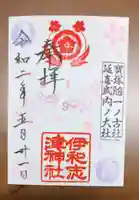 寶塚随一ノ古社
延喜式内ノ大社
奉拝
令和二年五月一日
伊和志
津神社